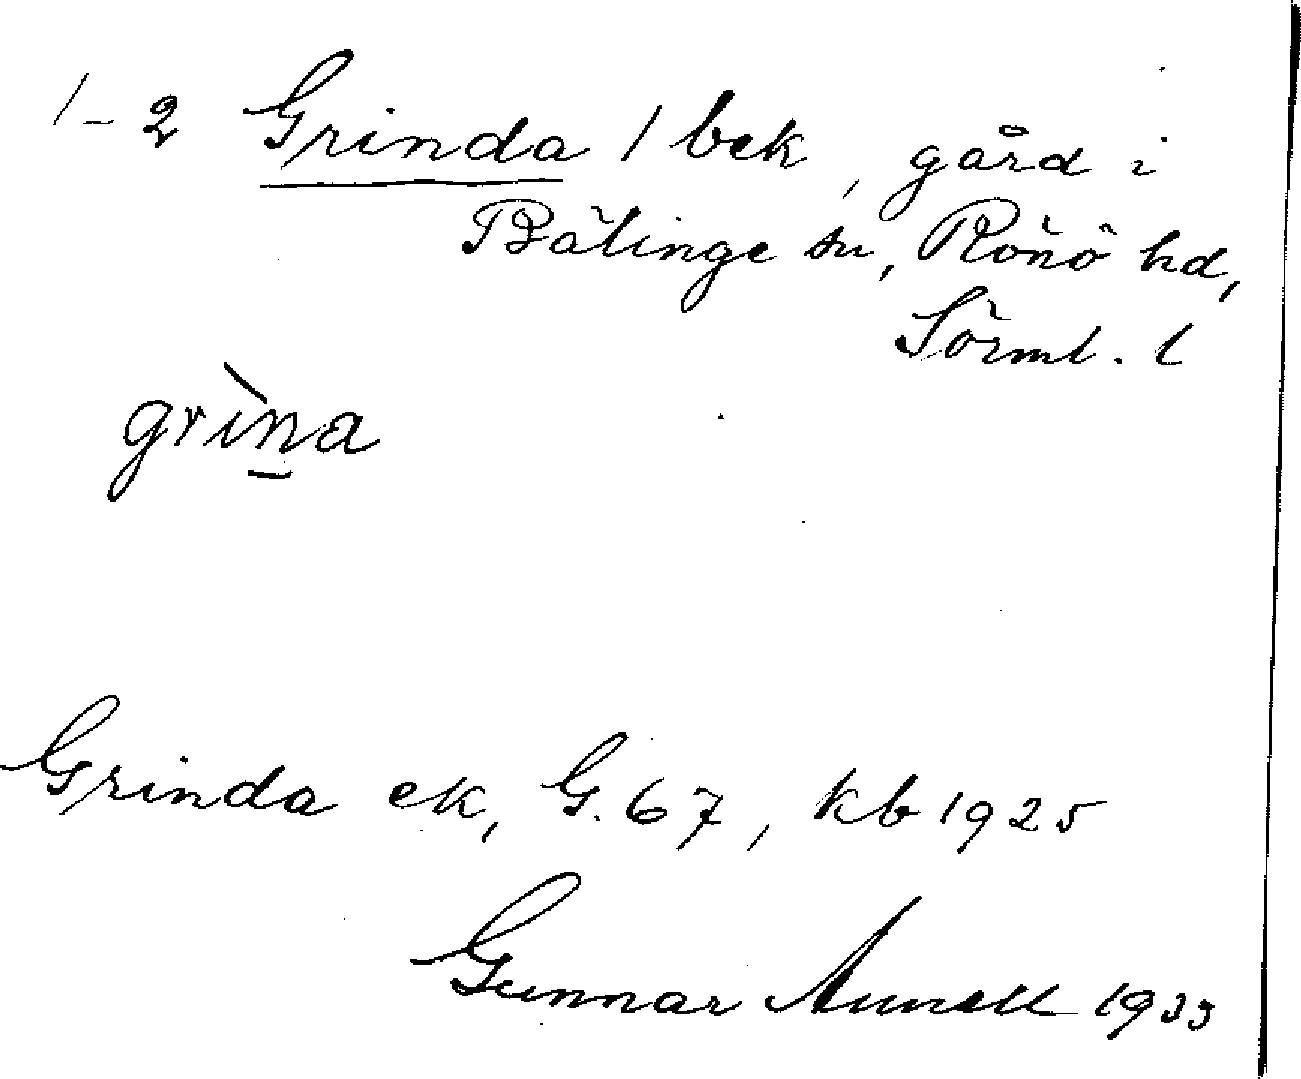 1-2 Grinda / bek, gård i
Bälinge sn, Rönö hd,
Sörml. l
grìn̲a
Grinda ek, G. 67, kb 1925
Gunnar 1933